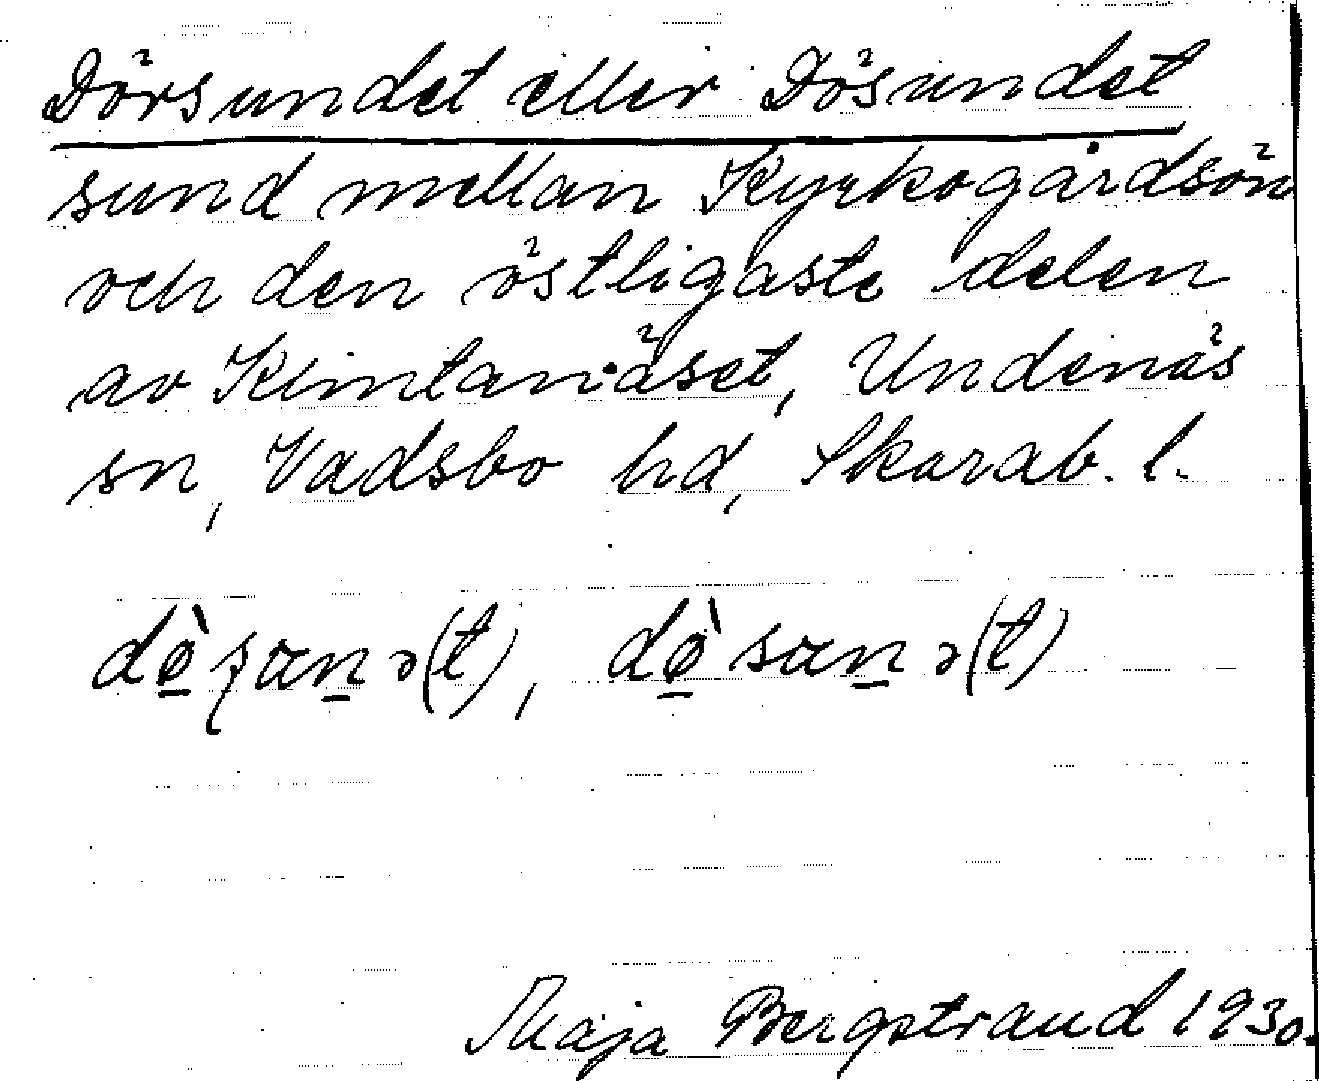 Dörsundet eller Dösundet
sund mellan Kyrkogårdsön
och den östligaste delen
av Kimtanäset, Undenäs
sn, Vadsbo hd, Skarab. l.
dø̠̀ʂαn̠ɔ(t), dø̠̀sαn̠ɔ(t)
Maja Bergstrand 1930.